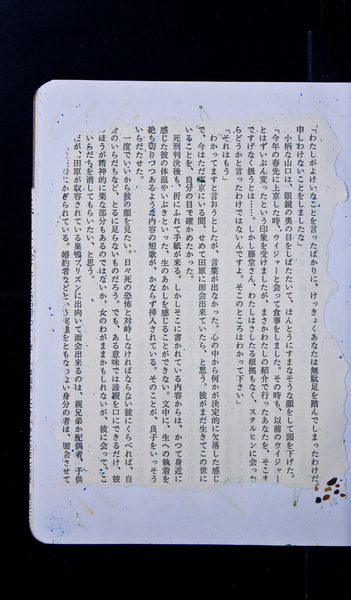 「わたしがよけいなことを言ったばかりに、けっきょくあなたは無駄足を踏んでしまったわけだ。
申しわけないことをしましたな」
小柄な山口は、眼鏡の奥の目をしばたたいて、ほんとうにすまなそうな顔をして頭を下げた。
「今年の春先に上京した時、ウイジャーと会って食事をしました。その時も、以前のウイジャー
とはずいぶん変ったという印象を受けましたが、まさかわたしの紹介で行ったあなたを、そこま
ですげなく扱うとは……。しかし藤堂さん、わたしはさしたる根拠もなく、スタルヒンに会った
らどうかと言ったわけではないんですよ。そこのところはわかって下さい」
「それはもう」
わかってますと言おうとしたが、言葉が出なかった。心の中から何かが決定的に欠落した感じ
で、今はただ東京にいる間、せめて田原に面会出来ていたら、と思う。彼がまだ生きてこの世に
いることを、自分の目で確かめたかった。
死刑判決後も、折にふれて手紙が来る。しかしそこに書かれている内容からは、かつて身近に
感じた彼の体温やいぶきといった、生のあかしを感じることができない。文中に、生への執着を
絶ち切りつつあるような内容の短歌が、かならず挿入されている。そのことが、良子をいっそう
いらだたせた。
一度でいいから彼の顔を見たい。日々死の恐怖と対峙しなければならない彼にくらべれば、自
分のいらだちなど、とるに足らないものだろう。でも、ある意味では諦観を口にできるだけ、彼
のほうが精神的に楽な部分もあるのではないか。女のわがままかもしれないが、彼に会って、こ
いらだちを消してもらいたい、と思う。
だが、田原が収容されている巣鴨プリズンに出向いて面会出来るのは、親兄弟か配偶者、子供
にかぎられている。婚約者などという実感をともなわない身分の者は、面会させて